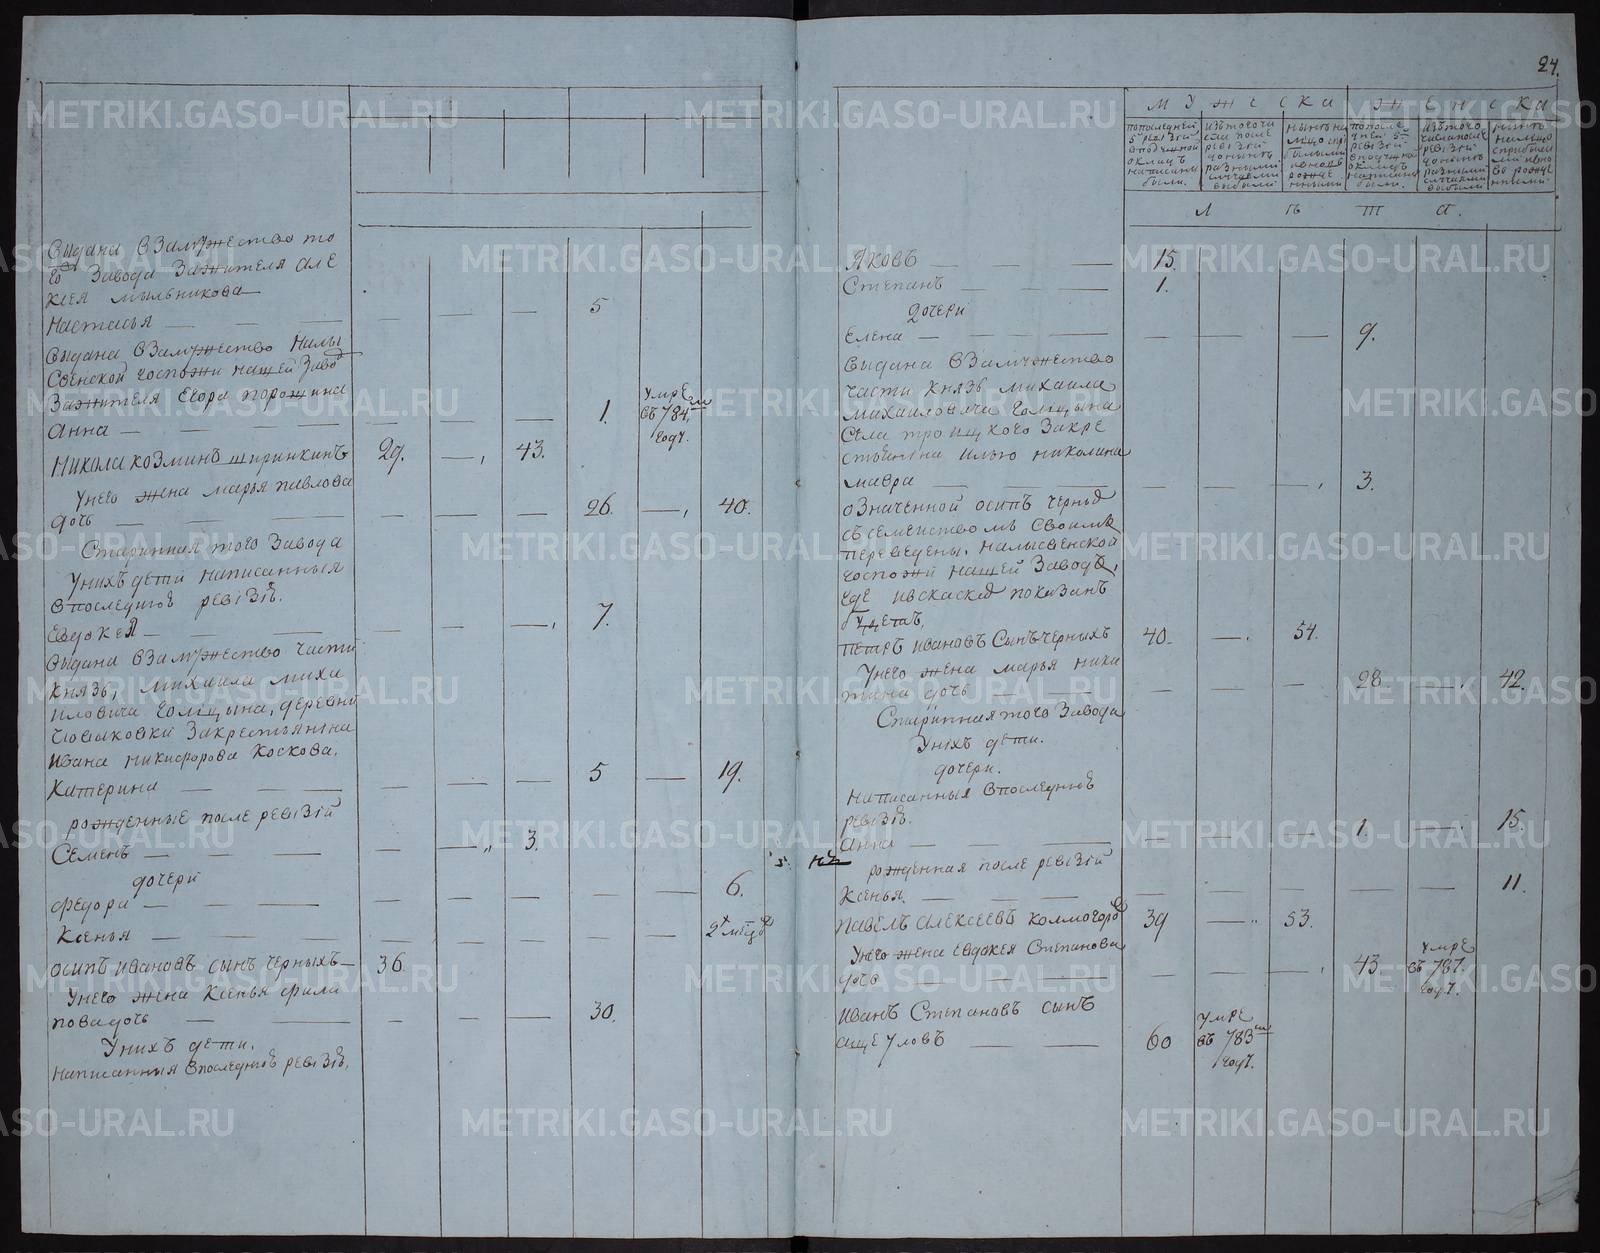 выдана взамужество то
го завода зажителя але
ксея мыльникова
Настасья — — — — — — 5
выдана взамужество налы
свенской госпожи нашей завод
зажителя егора порошина
Анна — — — — — — 1. умре въ 784м году.
Никола козминъ шпринкинъ 29. — 43.
унего жена марья павлова
дочь — — — — — 26. — 40.
Старинная того завода
Унихъ дети написанныя
впоследнѣй ревизіи.
Евдокея — — — — — 7.
выдана взамужество части
князь, михаила миха
иловича голицына, деревни
закрестьянина
ивана никифорова коскова.
Катерина — — — — — 5 — 19.
рожденные после ревизіи
Семенъ — — — — 3.
дочери
Федора — — — — — — — 6.
Ксенья — — — — — — —
осипъ ивановъ сынъ черныхъ — 36.
Унего жена Ксенья фили
пова дочь — — — — — 30.
Унихъ дети.
написанныя впоследнѣй ревизіи.
24.
мужеска женска
попоследней 5 ревизіи вподушной окладъ написаны были.
изъ того числа после ревизіи доныне разными случаями выбыли
ныне на лицо с прибылыми и вновь рожденными
попоследней 5 ревизіи вподушной окладъ написаны были.
изъ того числа после ревизіи доныне разными случаями выбыли
ныне на лицо с прибылыми и вновь рожденными
лѣта.
Яковъ — — 15.
Степанъ — — — 1.
дочери
Елена — — — — — — 9.
выдана взамужество
части князь михаила
михаиловича голицына
села троицкого закре
стьянина илью николина
мавра — — — — — — 3.
означенной осипъ черных
съ семействомъ своимъ
переведены, налысвенской
госпожи нашей заводъ,
где показанъ
будетъ,
петръ ивановъ сынъ черныхъ 40. — 54.
Унего жена марья ники
тина дочь — — — — — 28 — 42.
Старинная того завода
Унихъ дети.
дочери.
написанныя впоследней
ревизіи.
Анна — — — — — 1. — 15.
рожденная после ревизіи
Ксенья. — — — — — — — 11.
павелъ алексеевъ колмогоров 39 — 53.
Унего жена евдокея степанова
дочь — — — — — 43 умре въ 787. году.
иванъ Степановъ сынъ
ащеуловъ — — 60 умре въ 783м году.
METRIKI.GASO-URAL.RU